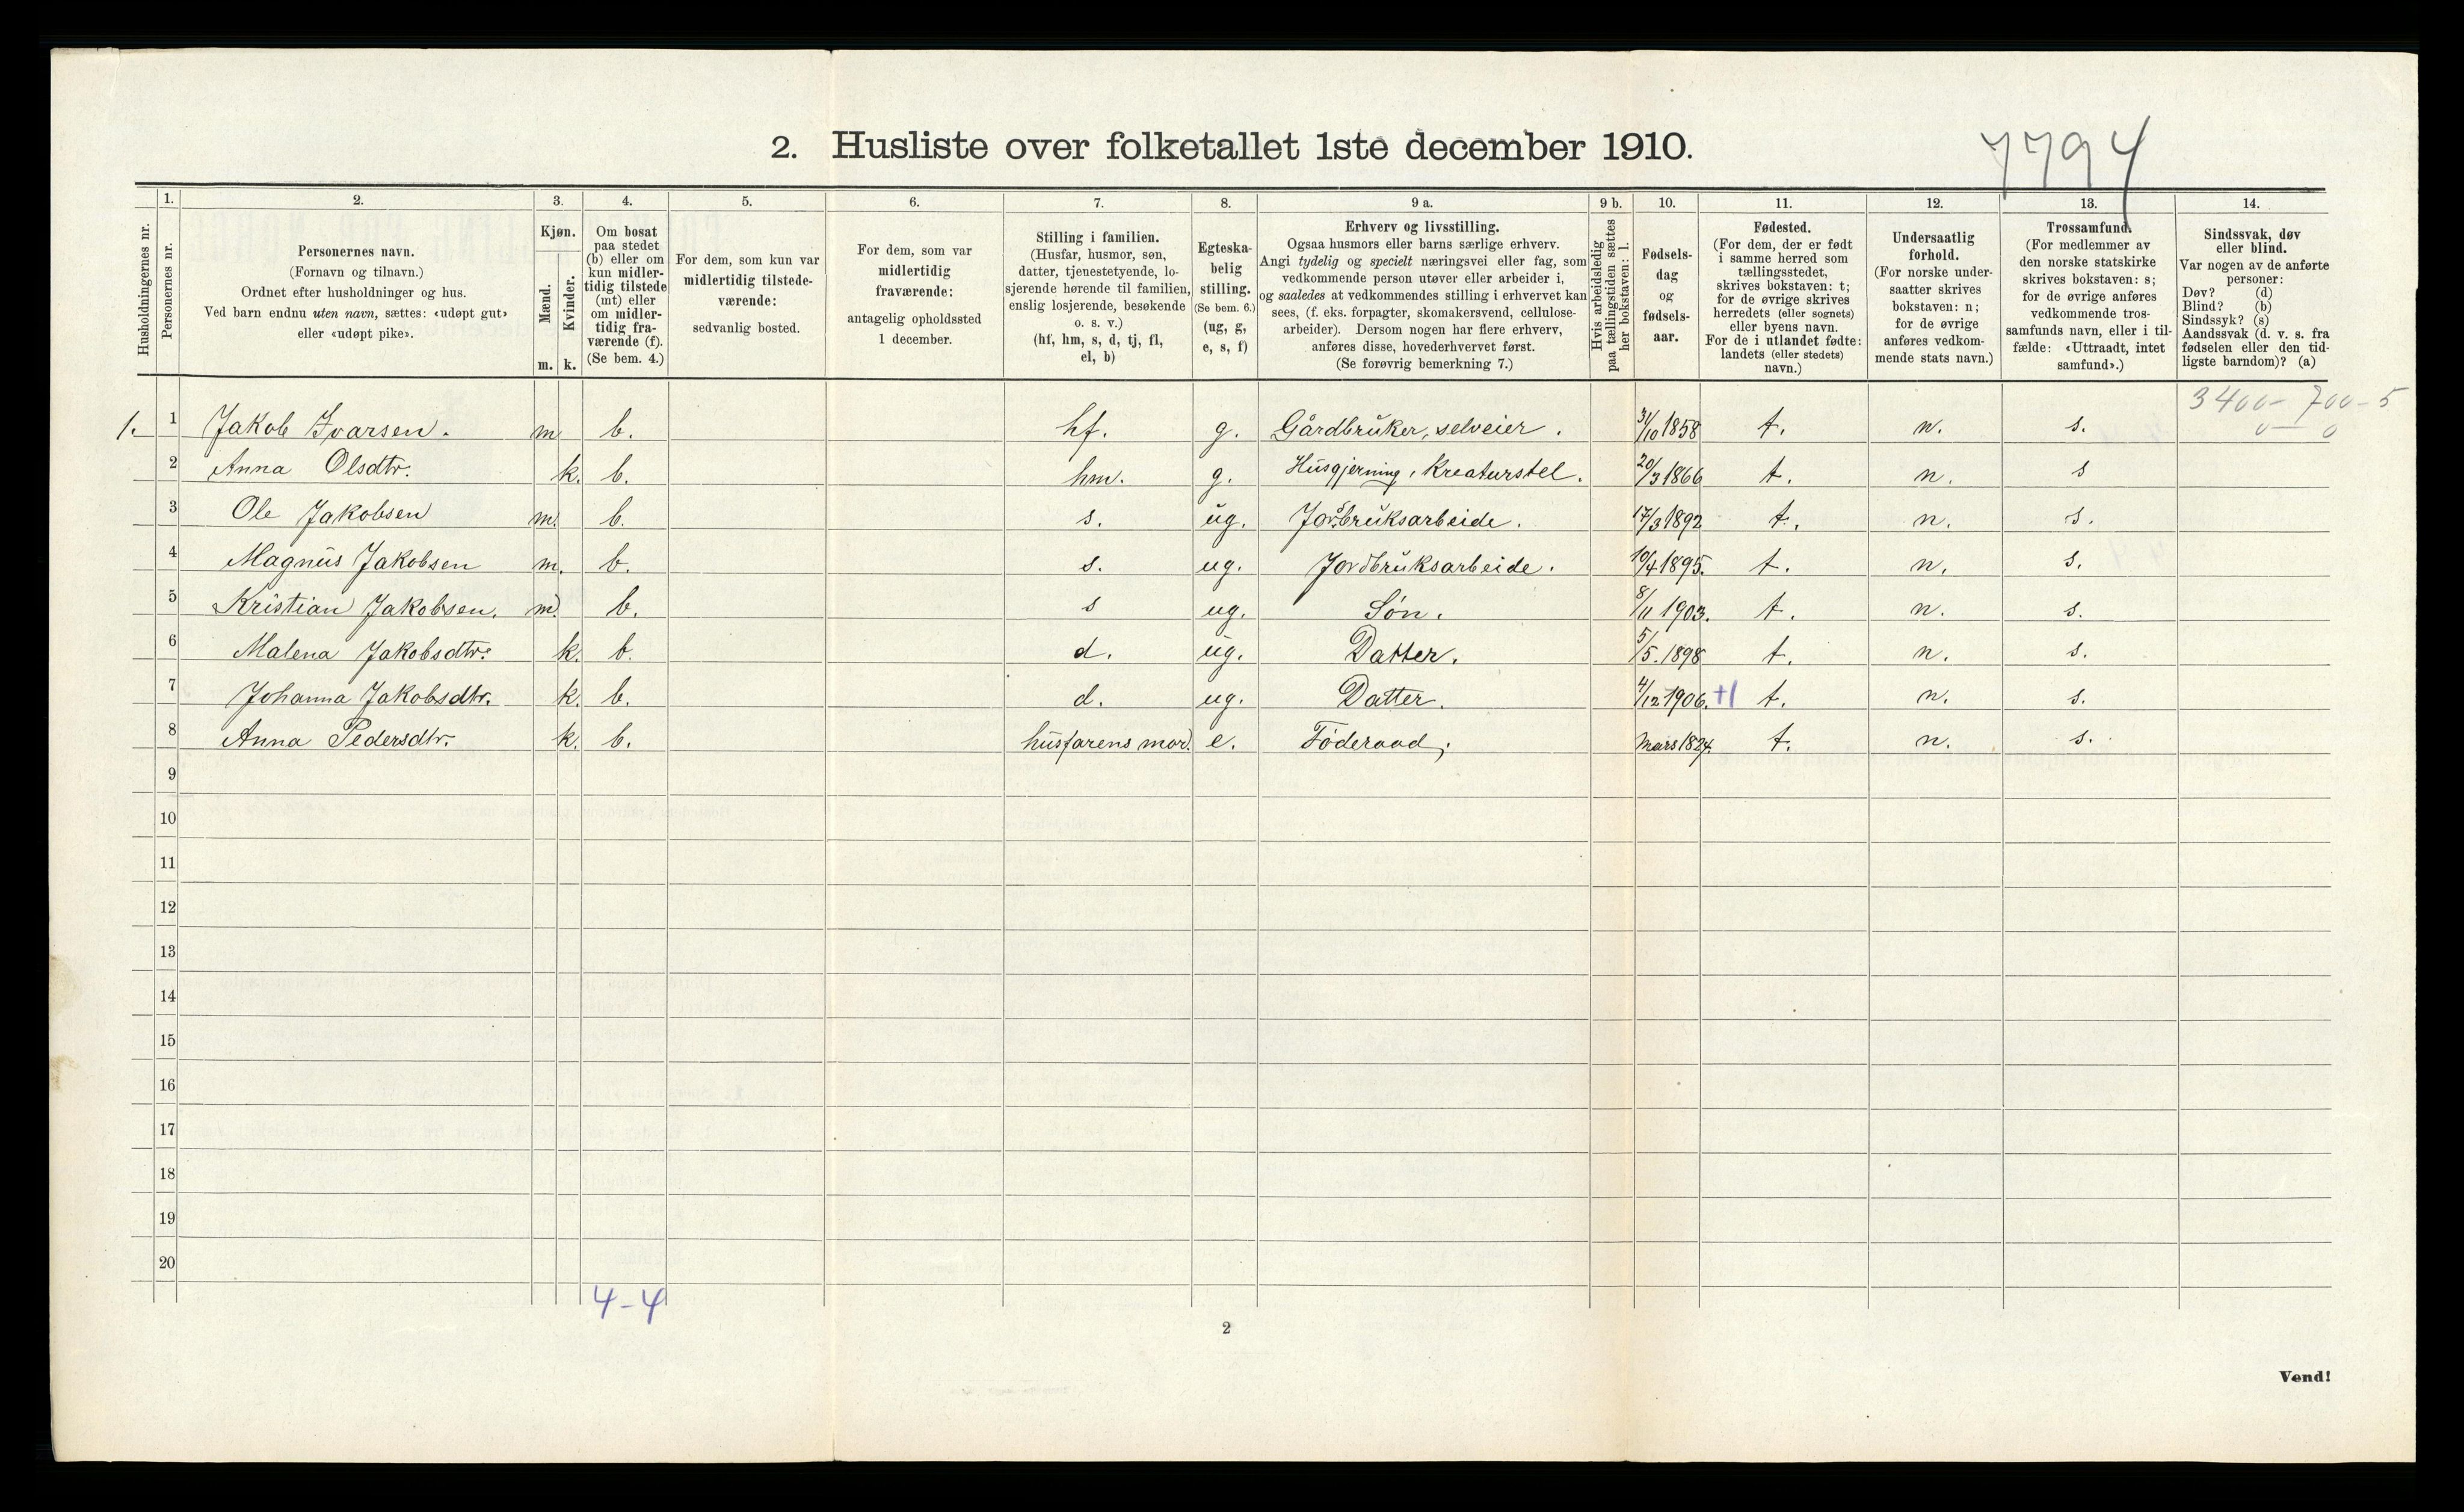 7794
2. Husliste over folketallet 1ste december 1910.
Husholdningernes nr.
1. Personernes nr.
2. Personernes navn.
(Fornavn og tilnavn.)
Ordnet efter husholdninger og hus.
Ved barn endnu uten navn, sættes: «udøpt gut»
eller «udøpt pike».
3. Kjøn.
Mænd. m.
Kvinder. k.
4. Om bosat
paa stedet
(b) eller om
kun midler-
tidig tilstede
(mt) eller
om midler-
tidig fra-
værende (f).
(Se bem. 4.)
5. For dem, som kun var
midlertidig tilstede-
værende:
sedvanlig bosted.
6. For dem, som var
midlertidig
fraværende:
antagelig opholdssted
1 december.
7. Stilling i familien.
(Husfar, husmor, søn,
datter, tjenestetyende, lo-
sjerende hørende til familien,
enslig losjerende, besøkende
o. s. v.)
(hf, hm, s, d, tj, fl,
el, b)
8. Egteska-
belig
stilling.
(Se bem. 6.)
(ug, g,
e, s, f)
9 a. Erhverv og livsstilling.
Ogsaa husmors eller barns særlige erhverv.
Angi tydelig og specielt næringsvei eller fag, som
vedkommende person utøver eller arbeider i,
og saaledes at vedkommendes stilling i erhvervet kan
sees, (f. eks. forpagter, skomakersvend, cellulose-
arbeider). Dersom nogen har flere erhverv,
anføres disse, hovederhvervet først.
(Se forøvrig bemerkning 7.)
9 b. Hvis arbeidsledig
paa tællingstiden sættes
her bokstaven: l.
10. Fødsels-
dag
og
fødsels-
aar.
11. Fødested.
(For dem, der er født
i samme herred som
tællingsstedet,
skrives bokstaven: t;
for de øvrige skrives
herredets (eller sognets)
eller byens navn.
For de i utlandet fødte:
landets (eller stedets)
navn.)
12. Undersaatlig
forhold.
(For norske under-
saatter skrives
bokstaven: n;
for de øvrige
anføres vedkom-
mende stats navn.)
13. Trossamfund.
(For medlemmer av
den norske statskirke
skrives bokstaven: s;
for de øvrige anføres
vedkommende tros-
samfunds navn, eller i til-
fælde: «Uttraadt, intet
samfund».)
14. Sindssvak, døv
eller blind.
Var nogen av de anførte
personer:
Døv? (d)
Blind? (b)
Sindssyk? (s)
Aandssvak (d. v. s. fra
fødselen eller den tid-
ligste barndom)? (a)
3400 - 700 - 5
0 — 0
1. 1 Jakob Ivarsen. m b. hf. g. Gårdbruker, selveier. 31/10 1858 t. n. s.
2 Anna Olsdtr. k. b. hm. g. Husgjerning, Kreaturstel. 20/3 1866 t. n. s
3 Ole Jakobsen m. b. s. ug. Jordbruksarbeide. 17/3 1892 t. n. s.
4 Magnus Jakobsen m. b. s. ug. Jordbruksarbeide. 10/4 1895. t. n. s.
5 Kristian Jakobsen. m. b. s ug. Søn. 8/11 1903. t. n. s.
6 Malena Jakobsdtr. k. b. d. ug. Datter. 5/5. 1898 t. n. s.
7 Johanna Jakobsdtr. k. b. d. ug. Datter. 4/12 1906. +1 t. n. s.
8 Anna Pedersdtr. k. b. husfarens mor. e. Föderaad. Mars 1824. t. n. s.
9
10
11
12
13
14
15
16
17
18
19
20
4-4
2
Vend!